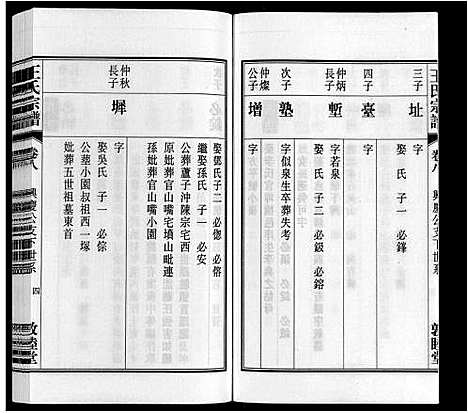 王氏宗譜
卷八
興慶公支下世系
敦睦堂
三子
址
字
娶 氏 子一 必鋒
四子
臺
字若泉
仲炳長子
塹
娶 氏 子二 必鈒 必鎔
次子
塾
字似泉生卒葬失考
仲燦公子
增
字
娶鄧氏 子二 必偬 必俗
繼娶孫氏 子一 必安
公葬蘆子沖陳宗宅西
原妣葬官山嘴宅墳山毗連
孫妣葬官山嘴小園
仲秋長子
墀
字
娶吳氏 子一 必傢
公葬小園叔祖西一塚
妣葬五世祖墓東首
王氏宗譜
卷八
興慶公支下世系
四
敦睦堂